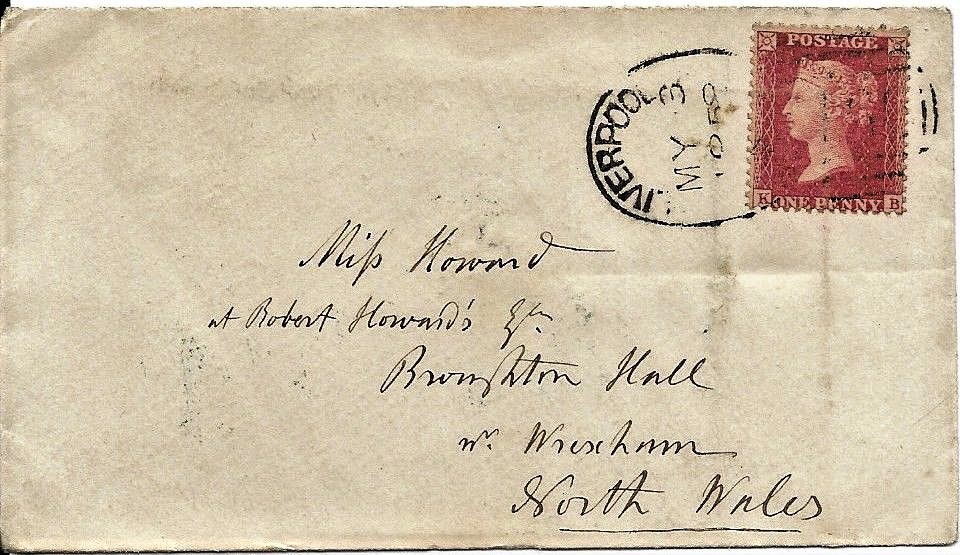 POSTAGE
K ONE PENNY B
LIVERPOOL
MY 3
1859
Miſs Howard
at Robert Howard's Esqre
Broughton Hall
nr. Wrexham
North Wales